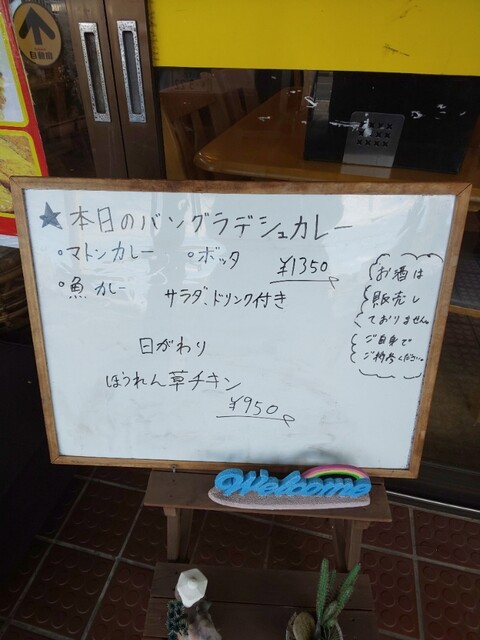 自動扉
★本日のバングラデシュカレー
・マトンカレー ・ボッタ ¥1350
・魚カレー サラダ、ドリンク付き
お酒は
販売し
ておりません。
ご自身で
ご持参ください。
日がわり
ほうれん草チキン
¥950
Welcome